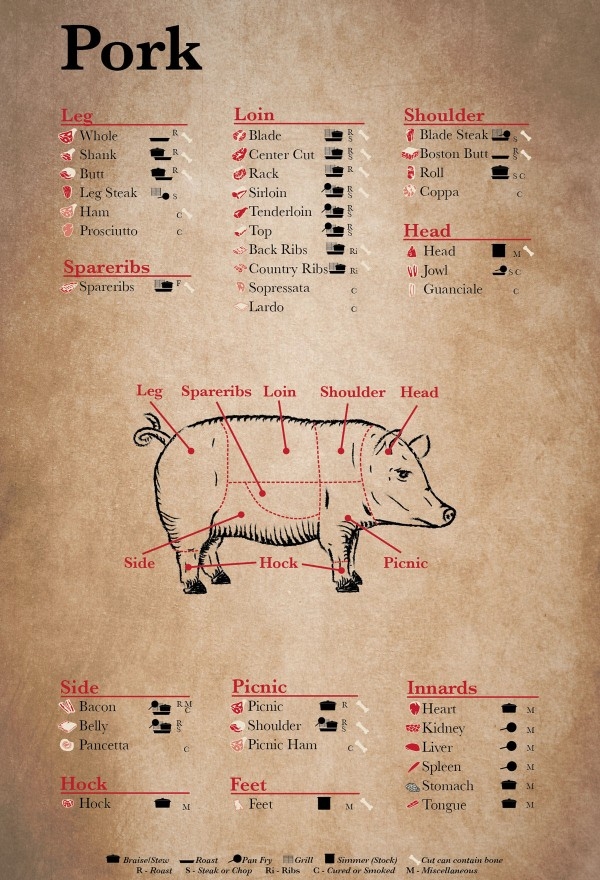 Pork
Leg
Whole R
Shank R
Butt R
Leg Steak S
Ham C
Prosciutto C
Spareribs
Spareribs F
Loin
Blade R S
Center Cut R S
Rack R
Sirloin R S
Tenderloin R S
Top R S
Back Ribs Ri
Country Ribs Ri
Sopressata C
Lardo C
Shoulder
Blade Steak S
Boston Butt R S
Roll S C
Coppa C
Head
Head M
Jowl S C
Guanciale C
Leg Spareribs Loin Shoulder Head
Side Hock Picnic
Side
Bacon R M C
Belly R S
Pancetta C
Hock
Hock M
Picnic
Picnic R
Shoulder R S
Picnic Ham C
Feet
Feet M
Innards
Heart M
Kidney M
Liver M
Spleen M
Stomach M
Tongue M
Braise/Stew Roast Pan Fry Grill Simmer (Stock) Cut can contain bone
R - Roast S - Steak or Chop Ri - Ribs C - Cured or Smoked M - Miscellaneous